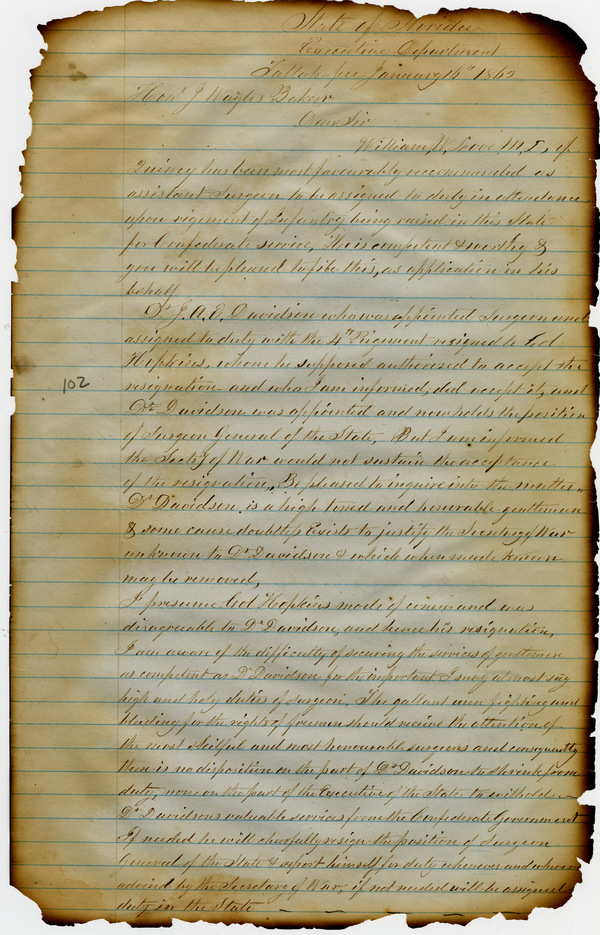 State of Florida
Executive Department
Tallahassee January 16th 1862
Honl J Wayles Baker
Dear Sir
William W. Love M. D, of
Quincy has been most favourably recommended as
assistant Surgeon to be assigned to duty in attendance
upon regiment of Infantry being raised in this State
for Confederate service, He is competent & worthy &
you will be pleased to file this, as application in his
behalf
Dr J. A. E. Davidson who was appointed Surgeon and
assigned to duty with the 4th Regiment resigned to Col
Hopkins, whom he supposed authorised to accept the
resignation and who I am informed, did accept it, and
Dr Davidson was appointed and now holds the position
of Surgeon General of the State, But I am informed
the Secty of War would not sustain the acceptance
of the resignation, Be pleased to inquire into the matter.
Dr Davidson is a high toned and honorable gentleman
& some cause doubtless Exists to justify the Secretary War
unknown to Dr Davidson & which when made known
may be removed,
I presume Col Hopkins mode of and was
disagreeable to Dr Davidson, and hence his resignation,
I am aware of the difficulty of securing the services of gentlemen
as competent as Dr Davidson for the important I may almost say
high and holy duties of surgeon, The gallant men fighting and
bleeding for the rights of freemen should receive the attention of
the most skilful and most honourable surgeons and consequently
there is no disposition on the part of Dr Davidson to shrink from
duty, none on the part of the Executive of the State to withold
Dr Davidsons valuable services from the Confederate Government
If needed he will cheerfully resign the position of Surgeon
General of the State & report himself for duty whenever and wherever
advised by the Secretary of War, if not needed will be assigned
duty in the State
102